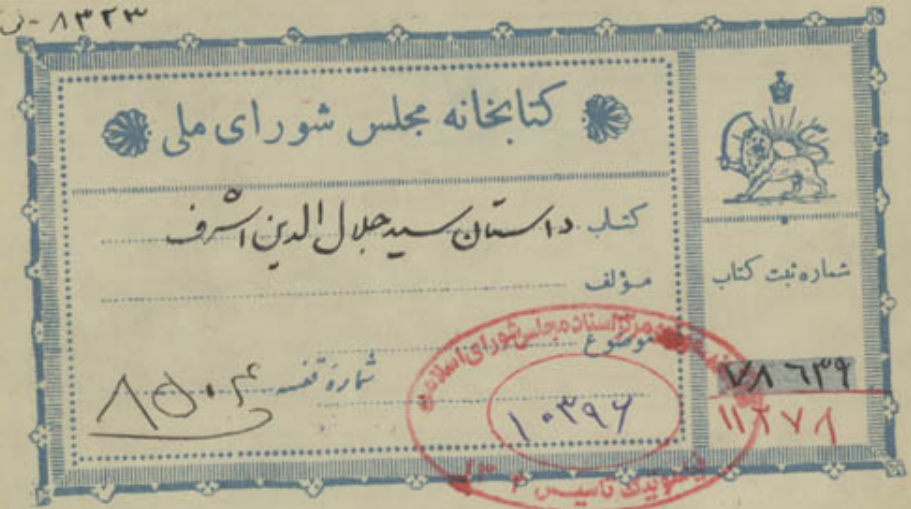 ف - ۸۳۲۳
کتابخانه مجلس شورای ملی
کتاب داستان سید جلال الدین اشرف
مؤلف
موضوع
شماره قفسه ۸۵۰۴
شماره ثبت کتاب
۷۸۶۳۹
۱۱۲۷۸
مرکز اسناد مجلس شورای اسلامی
۱۰۳۹۶
تاسیس